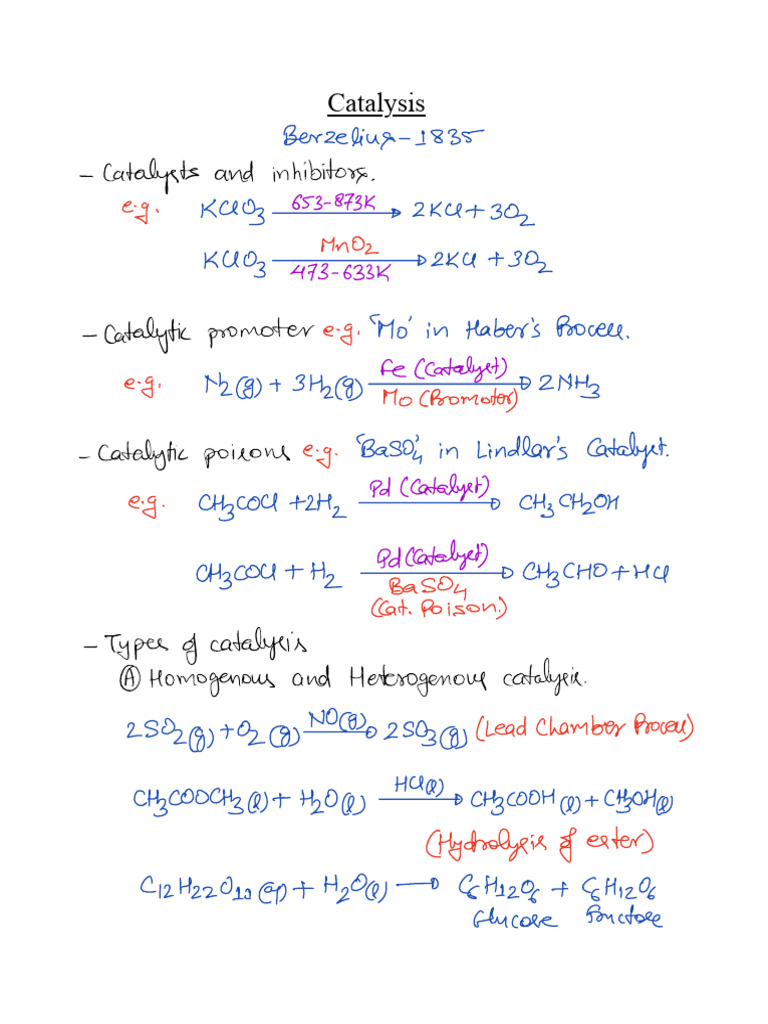 Catalysis
Berzelius - 1835
- Catalysts and inhibitors.
e.g. KClO3 653-873K → 2KCl + 3O2
KClO3 MnO2 473-633K → 2KCl + 3O2
- Catalytic promoter e.g. 'Mo' in Haber's Process.
e.g. N2(g) + 3H2(g) Fe (Catalyst) Mo (Promoter) → 2NH3
- Catalytic poisons e.g. 'BaSO4' in Lindlar's Catalyst.
e.g. CH3COCl + 2H2 Pd (Catalyst) → CH3CH2OH
CH3COCl + H2 Pd (Catalyst) BaSO4 (Cat. Poison.) → CH3CHO + HCl
- Types of catalysis
Ⓐ Homogenous and Heterogenous catalysis.
2SO2(g) + O2(g) NO(g) → 2SO3(g) (Lead Chamber Process)
CH3COOCH3(l) + H2O(l) HCl(l) → CH3COOH(l) + CH3OH(l)
(Hydrolysis of ester)
C12H22O11(aq) + H2O(l) → C6H12O6 + C6H12O6
Glucose Fructose